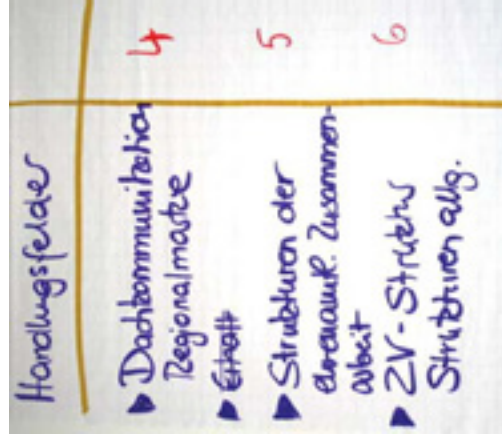 Handlungsfelder
▶ Dachkommunikation 4
Regionalmarke
▶
▶ Strukturen der 5
ehrenamtl. Zusammen-
arbeit
▶ ZV-Struktur 6
Strukturen allg.